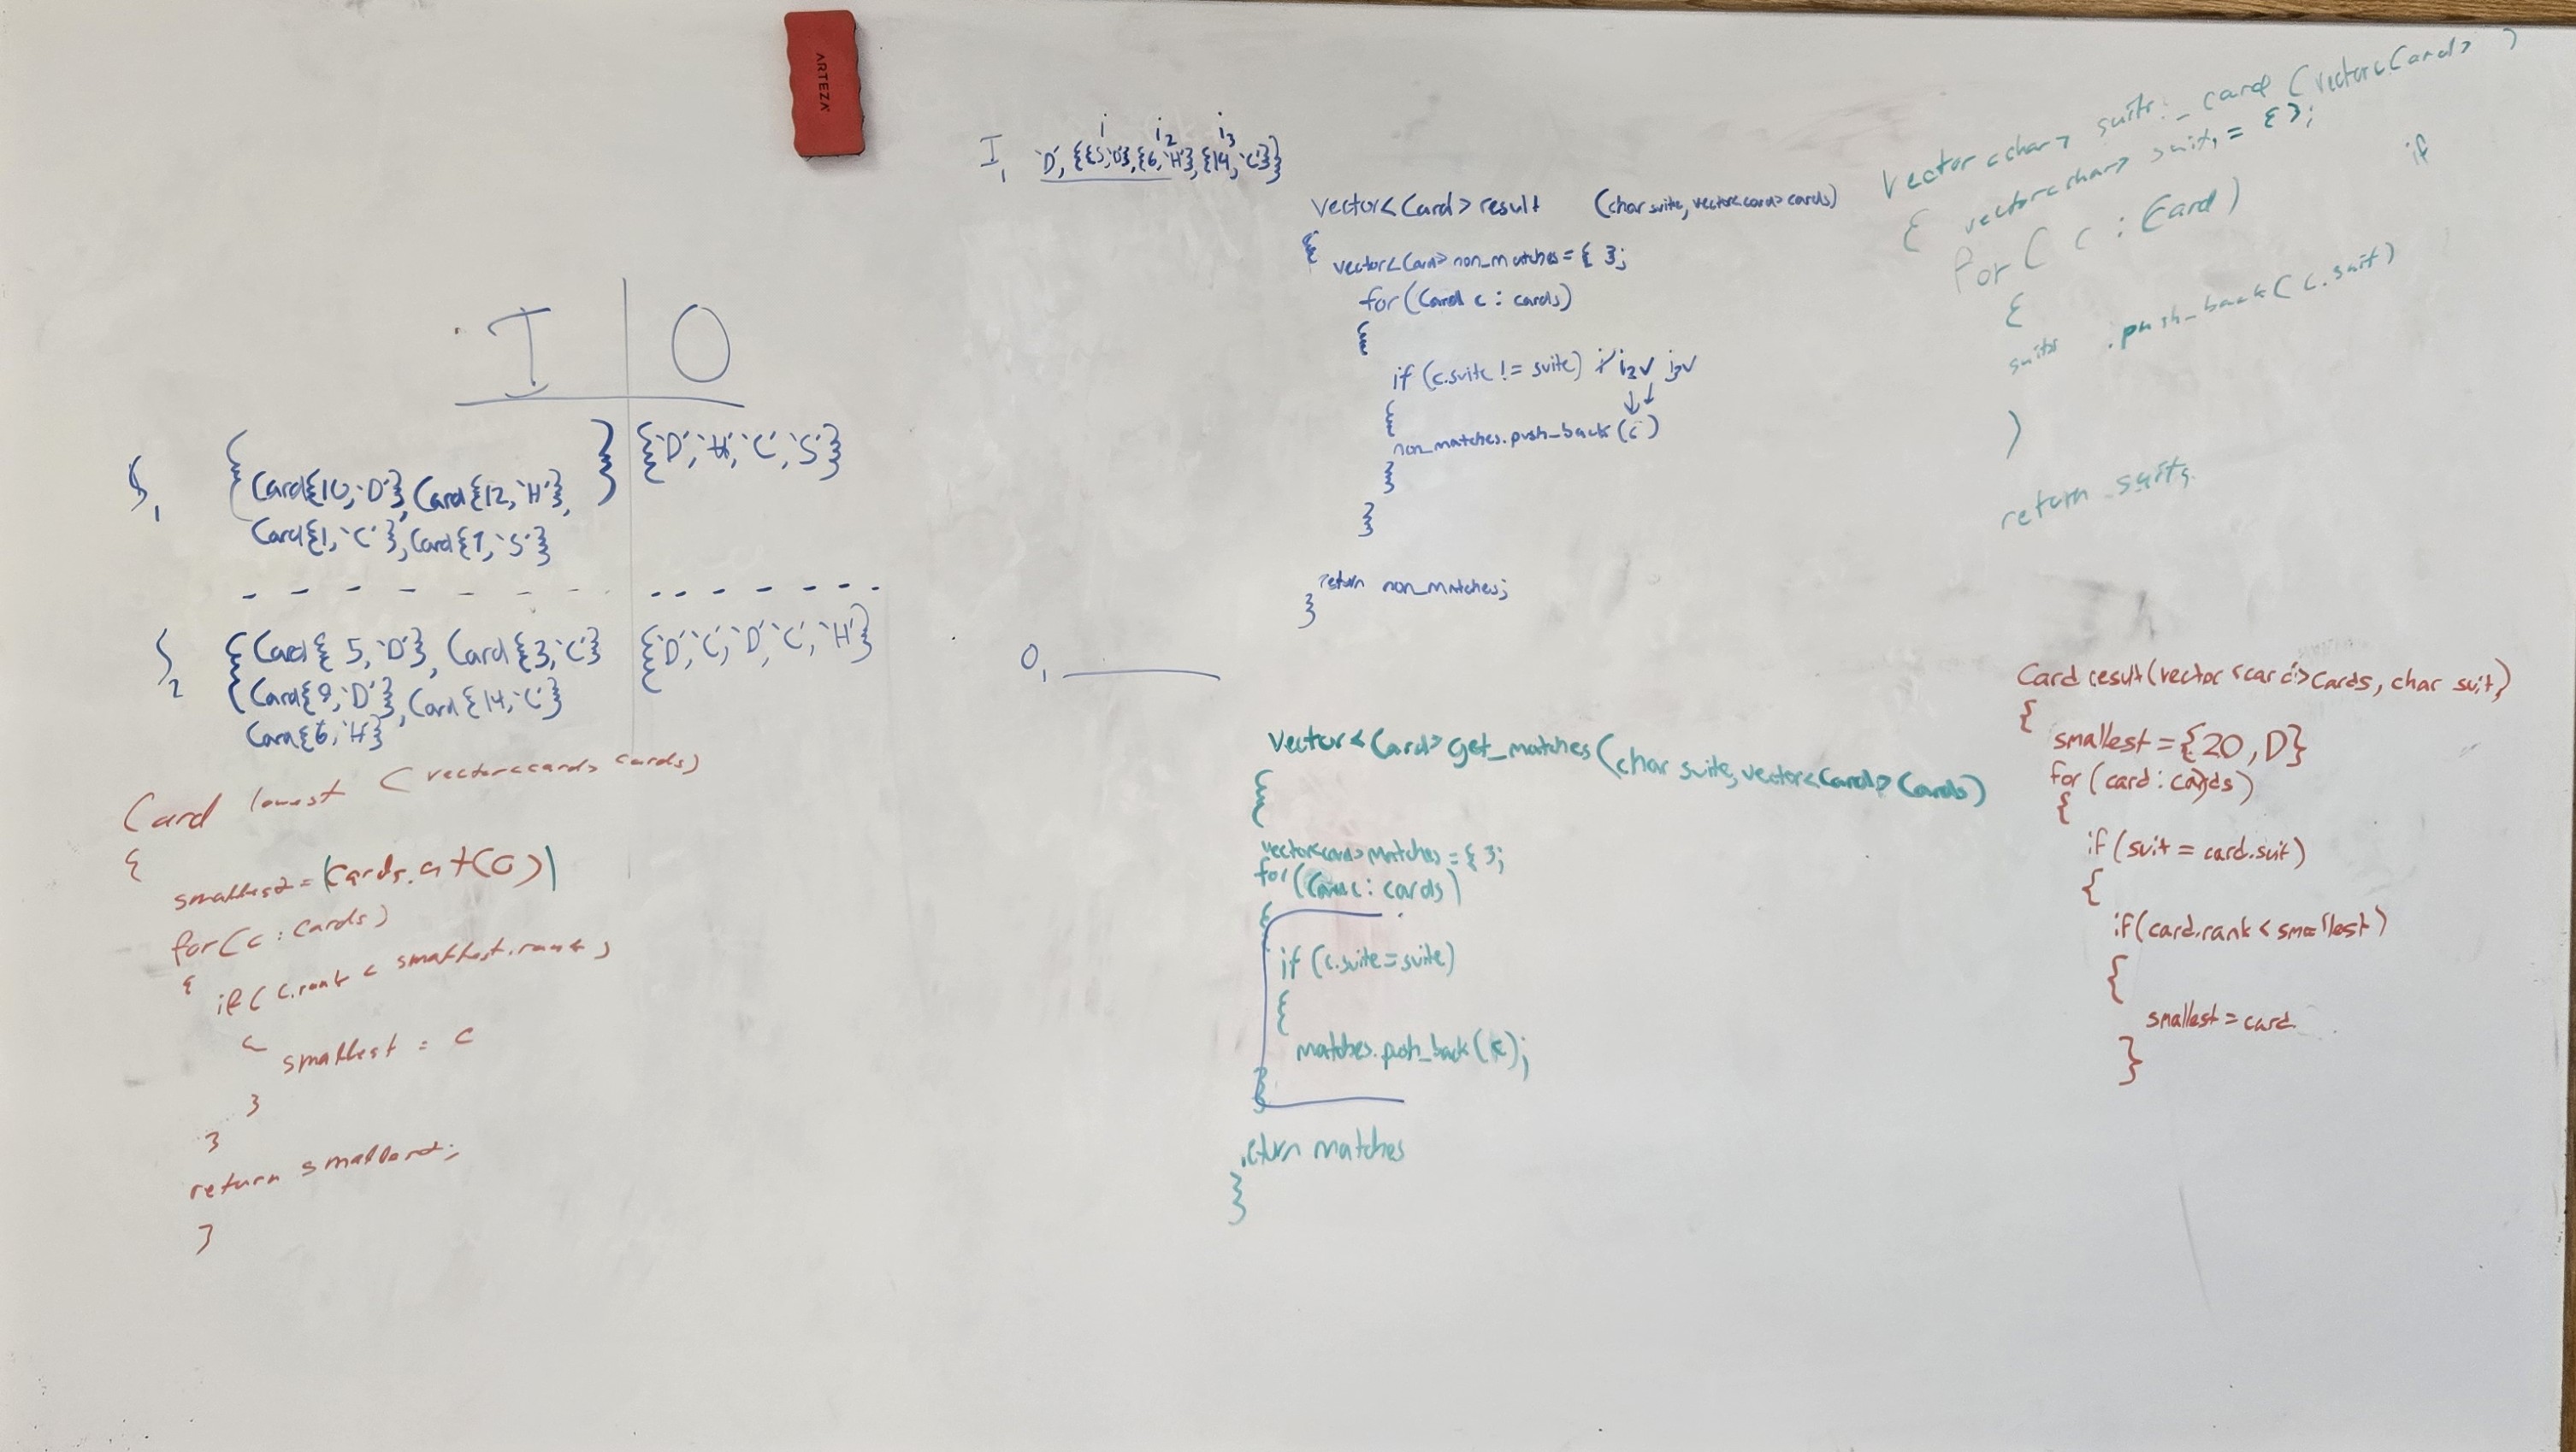 ARTEZA
I O
S1 {Card{10,'D'}, Card{12,'H'},
Card{1,'C'}, Card{7,'S'}
}
{'D','H','C','S'}
S2 {Card{5,'D'}, Card{3,'C'}
Card{9,'D'}, Card{14,'C'}
Card{6,'H'}
{'D','C','D','C','H'}
Card lowest (vector<card> cards)
{
smallest = (cards.at(0))
for(c : cards)
{ if(c.rank < smallest.rank)
{ smallest = c
}
}
return smallest;
}
i i2 i3
I1 'D', {{5,'D'},{6,'H'},{14,'C'}}
vector<Card> result (char suite, vector<card> cards)
{
vector<Card> non_matches = { };
for(Card c : cards)
{
if(c.suite != suite) i i2✓ i3✓
{
non_matches.push_back(c)
}
}
return non_matches;
}
O1
vector<Card> get_matches(char suite, vector<Card> Cards)
{
vector<card> matches = { };
for(Card c : cards)
{
if(c.suite = suite)
{
matches.push_back(c);
}
return matches
}
vector<char> suits_card (vector<Card> )
{ vector<char> suits = { };
for( c : Card) if
{
suits .push_back(c.suit)
}
return suits
Card result(vector<card> cards, char suit)
{
smallest = {20, D}
for(card : cards)
{
if(suit = card.suit)
{
if(card.rank < smallest)
{
smallest = card
}